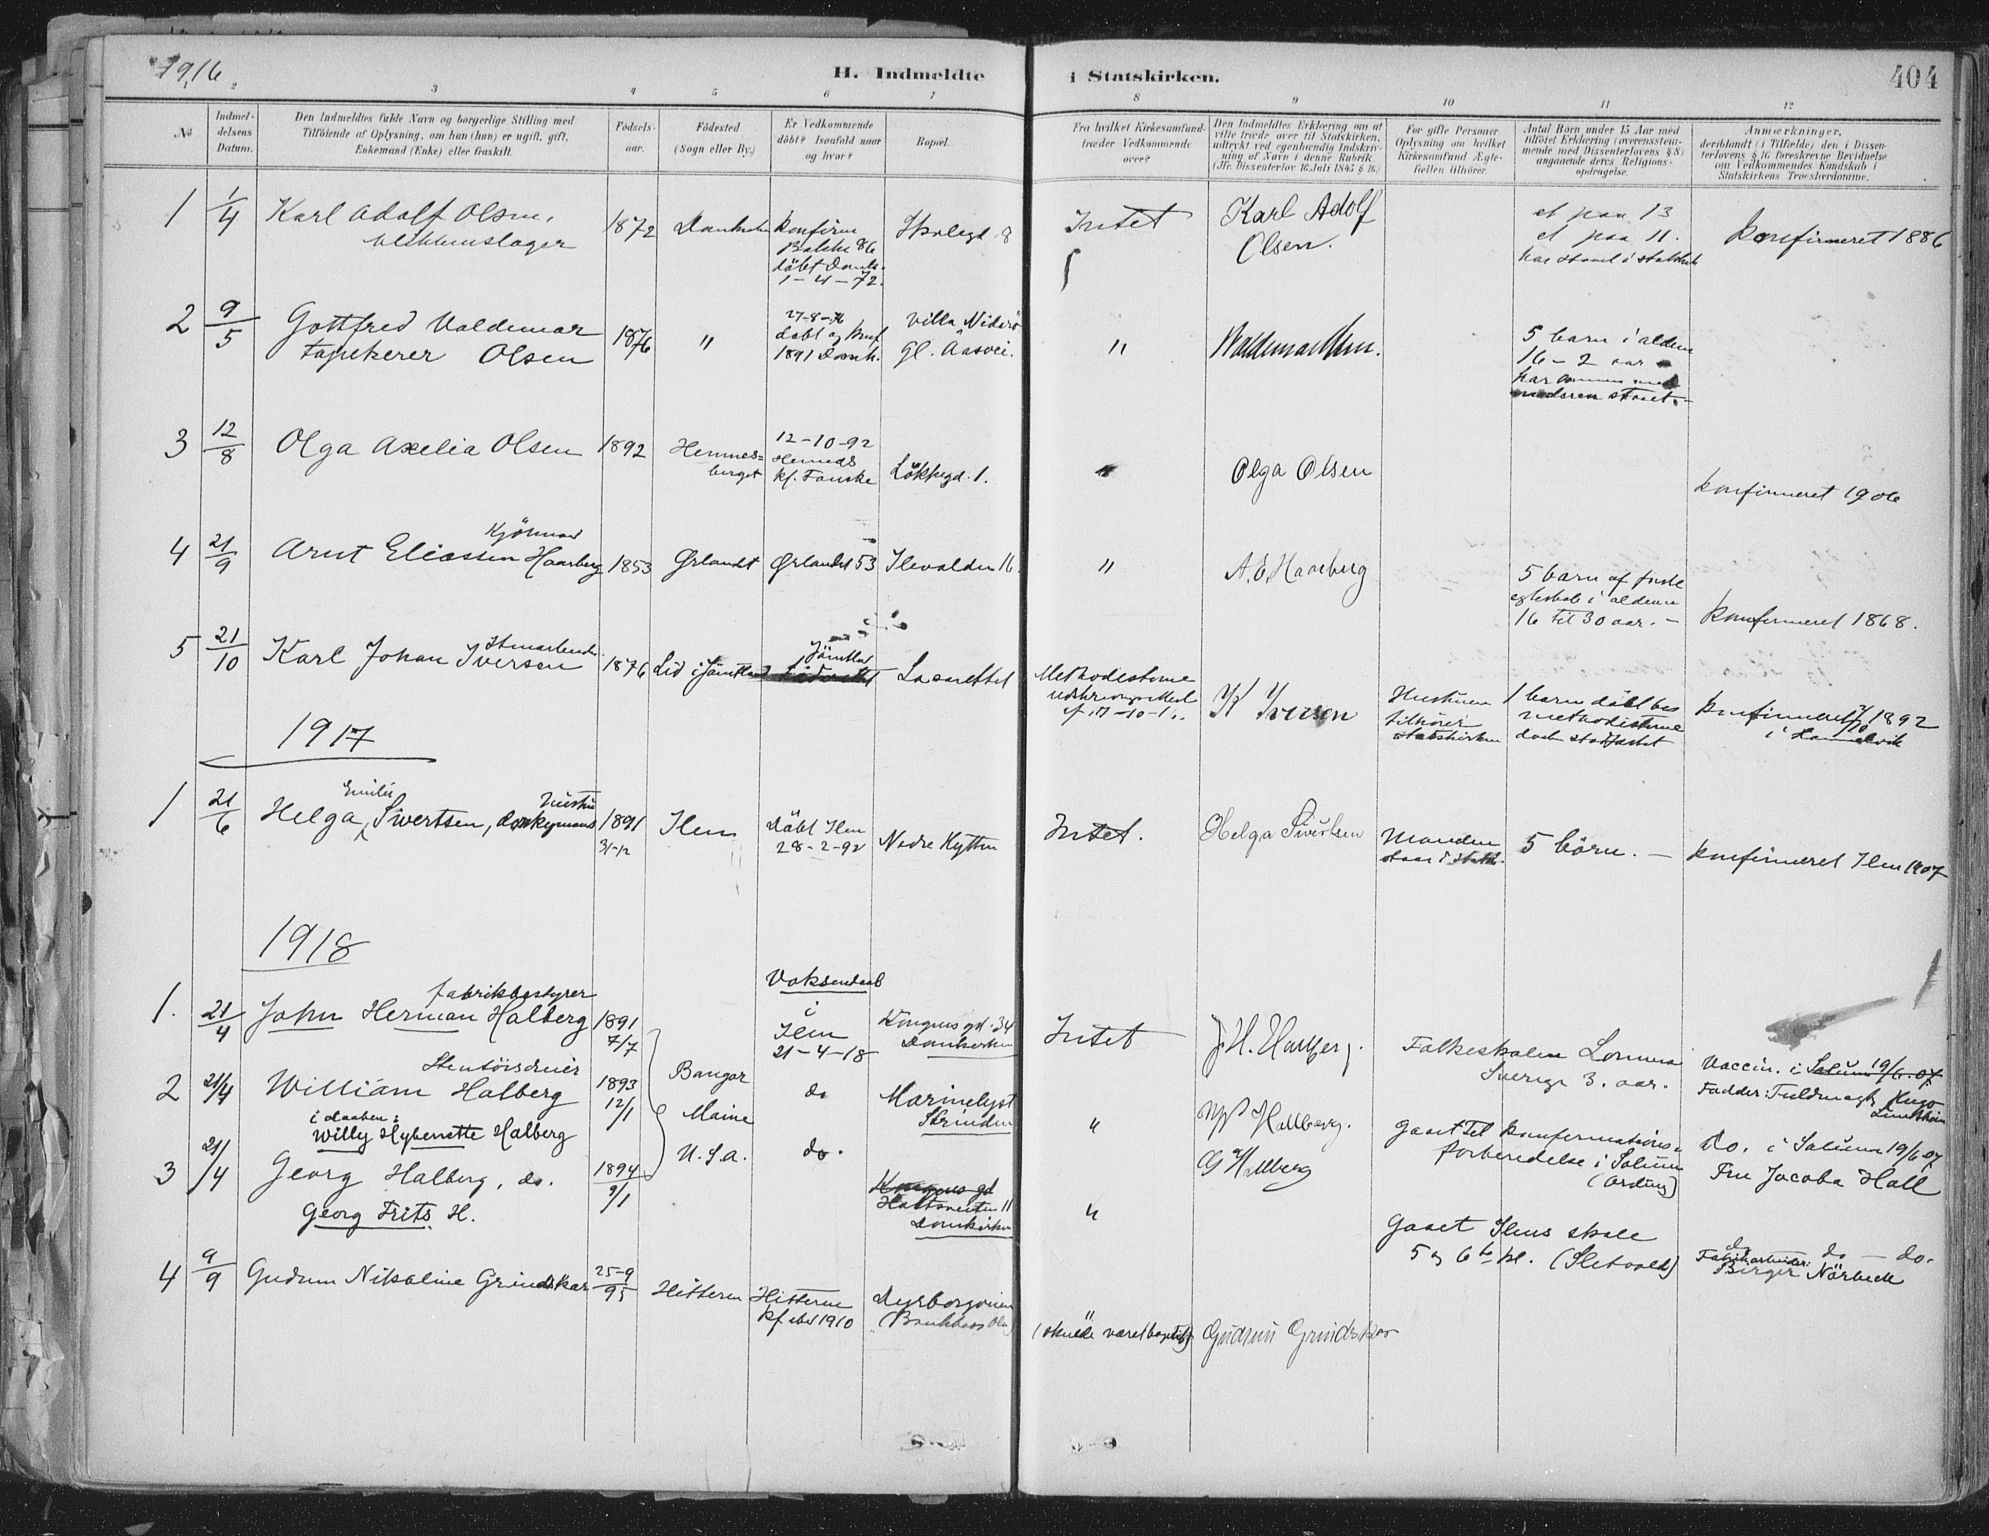 1916
H. Indmeldte i Statskirken.
404
1 2 3 4 5 6 7 8 9 10 11 12
No
Indmel-
delsens
Datum.
Den Indmeldtes fulde Navn og borgerlige Stilling med
Tilföiende af Oplysning, om han (hun) er ugift, gift,
Enkemand (Enke) eller fraskilt.
Födsels-
aar.
Födested
(Sogn eller By.)
Er Vedkommende
döbt? Isaafald naar
og hvor?
Bopæl.
Fra hvilket Kirkesamfund
træder Vedkommende
over?
Den Indmeldtes Erklæring om at
ville træde over til Statskirken,
udtrykt ved egenhændig Indskriv-
ning af Navn i denne Rubrik.
(Jfr. Dissenterlov 16 Juli 1845 § 16.)
For gifte Personer
Oplysning om hvilket
Kirkesamfund Ægte-
fællen tilhörer.
Antal Börn under 15 Aar med
tilföiet Erklæring (overensstem-
mende med Dissenterlovens § 8)
angaaende deres Religions-
opdragelse.
Anmærkninger,
deriblandt (i Tilfælde) den i Dissen-
terlovens § 16 foreskrevne Bevidnelse
om Vedkommendes Kundskab i
Statskirkens Troeslærdomme.
1 1/4 Karl Adolf Olsen,
blikkenslager
1872
konfirm
Bakke 86
döbt Domk.
1-4-72.
8
Intet
Karl Adolf
Olsen.
et paa 13
et paa 11.
konfirmeret 1886
2 9/5 Gottfred Valdemar
Tapetserer Olsen
1876
"
27-8-76
döbt og konf
1891 Domk.
Villa Nidarö
Gl. Aasvei.
"
5 barn i alderen
16 - 2 aar
staaet.
3 12/8 Olga Axelia Olsen
1892
Hemnes=
berget
12-10-92
Hemnes
kf. Fauske
Lökkegd. 1.
"
Olga Olsen
konfirmeret 1906
4 21/9 Arnt Eliassen Haarberg
1853
Ørlandet
Ørlandet 53
Ilevolden 16.
"
A. E. Haarberg
5 barn af förste
egteskab i alderen
16 til 30 aar. -
konfirmeret 1868.
5 21/10 Karl Johan Iversen
1876
Lid i Jämtland
Jämtland
Lasarettet
Methodisterne
K Iversen
Hustruen
tilhörer
statskirken
1 barn döbt hos
methodisterne
konfirmeret 1892
1917
1 21/6 Helga Emilie Sivertsen, donkeymands hustru
1891
31-12
Ilen
Döbt Ilen
28-2-92
Intet.
Helga Sivertsen
Manden
staar i statsk.
5 börn. -
konfirmeret Ilen 1907
1918
1. 21/4 John Herman Halberg
fabrikbestyrer
1891
7/7
Voksendaab
i
Ilen
21-4-18
Kongens gd. 34
Domkirken
Intet
J. H. Hallberg.
Folkeskolen Lomma
Sverige 3. aar.
Vaccin. i Solum 19/6.07
Fadder: Fuldmægt. Hugo
2 21/4 William Halberg
i daaben:
Willy Hyberette Halberg
1893
12/1
Bangor
Maine
U.S.A.
do
Marinelyst
Strinden
"
W Hallberg.
Gaaet til konfirmations=
forberedelse i Solum
do. i Solum 19/6 07
Fru Jacoba Hall
3 21/4 Georg Halberg, do.
Georg Frits H.
1894
9/1
do.
Kongens gd
Domkirken
"
G Hallberg
Gaaet Ilens skole
5 og 6te kl. (Sletvold)
do do - do.
Fabrikarbeider:
Birger Nörbech
4 9/9 Gudrun Nikoline Grindskar
25-9
95
Hitteren
Hitteren
kf ibd 1910
Dyrborgveien
"
(skulde været baptist)
Gudrun Grindskar